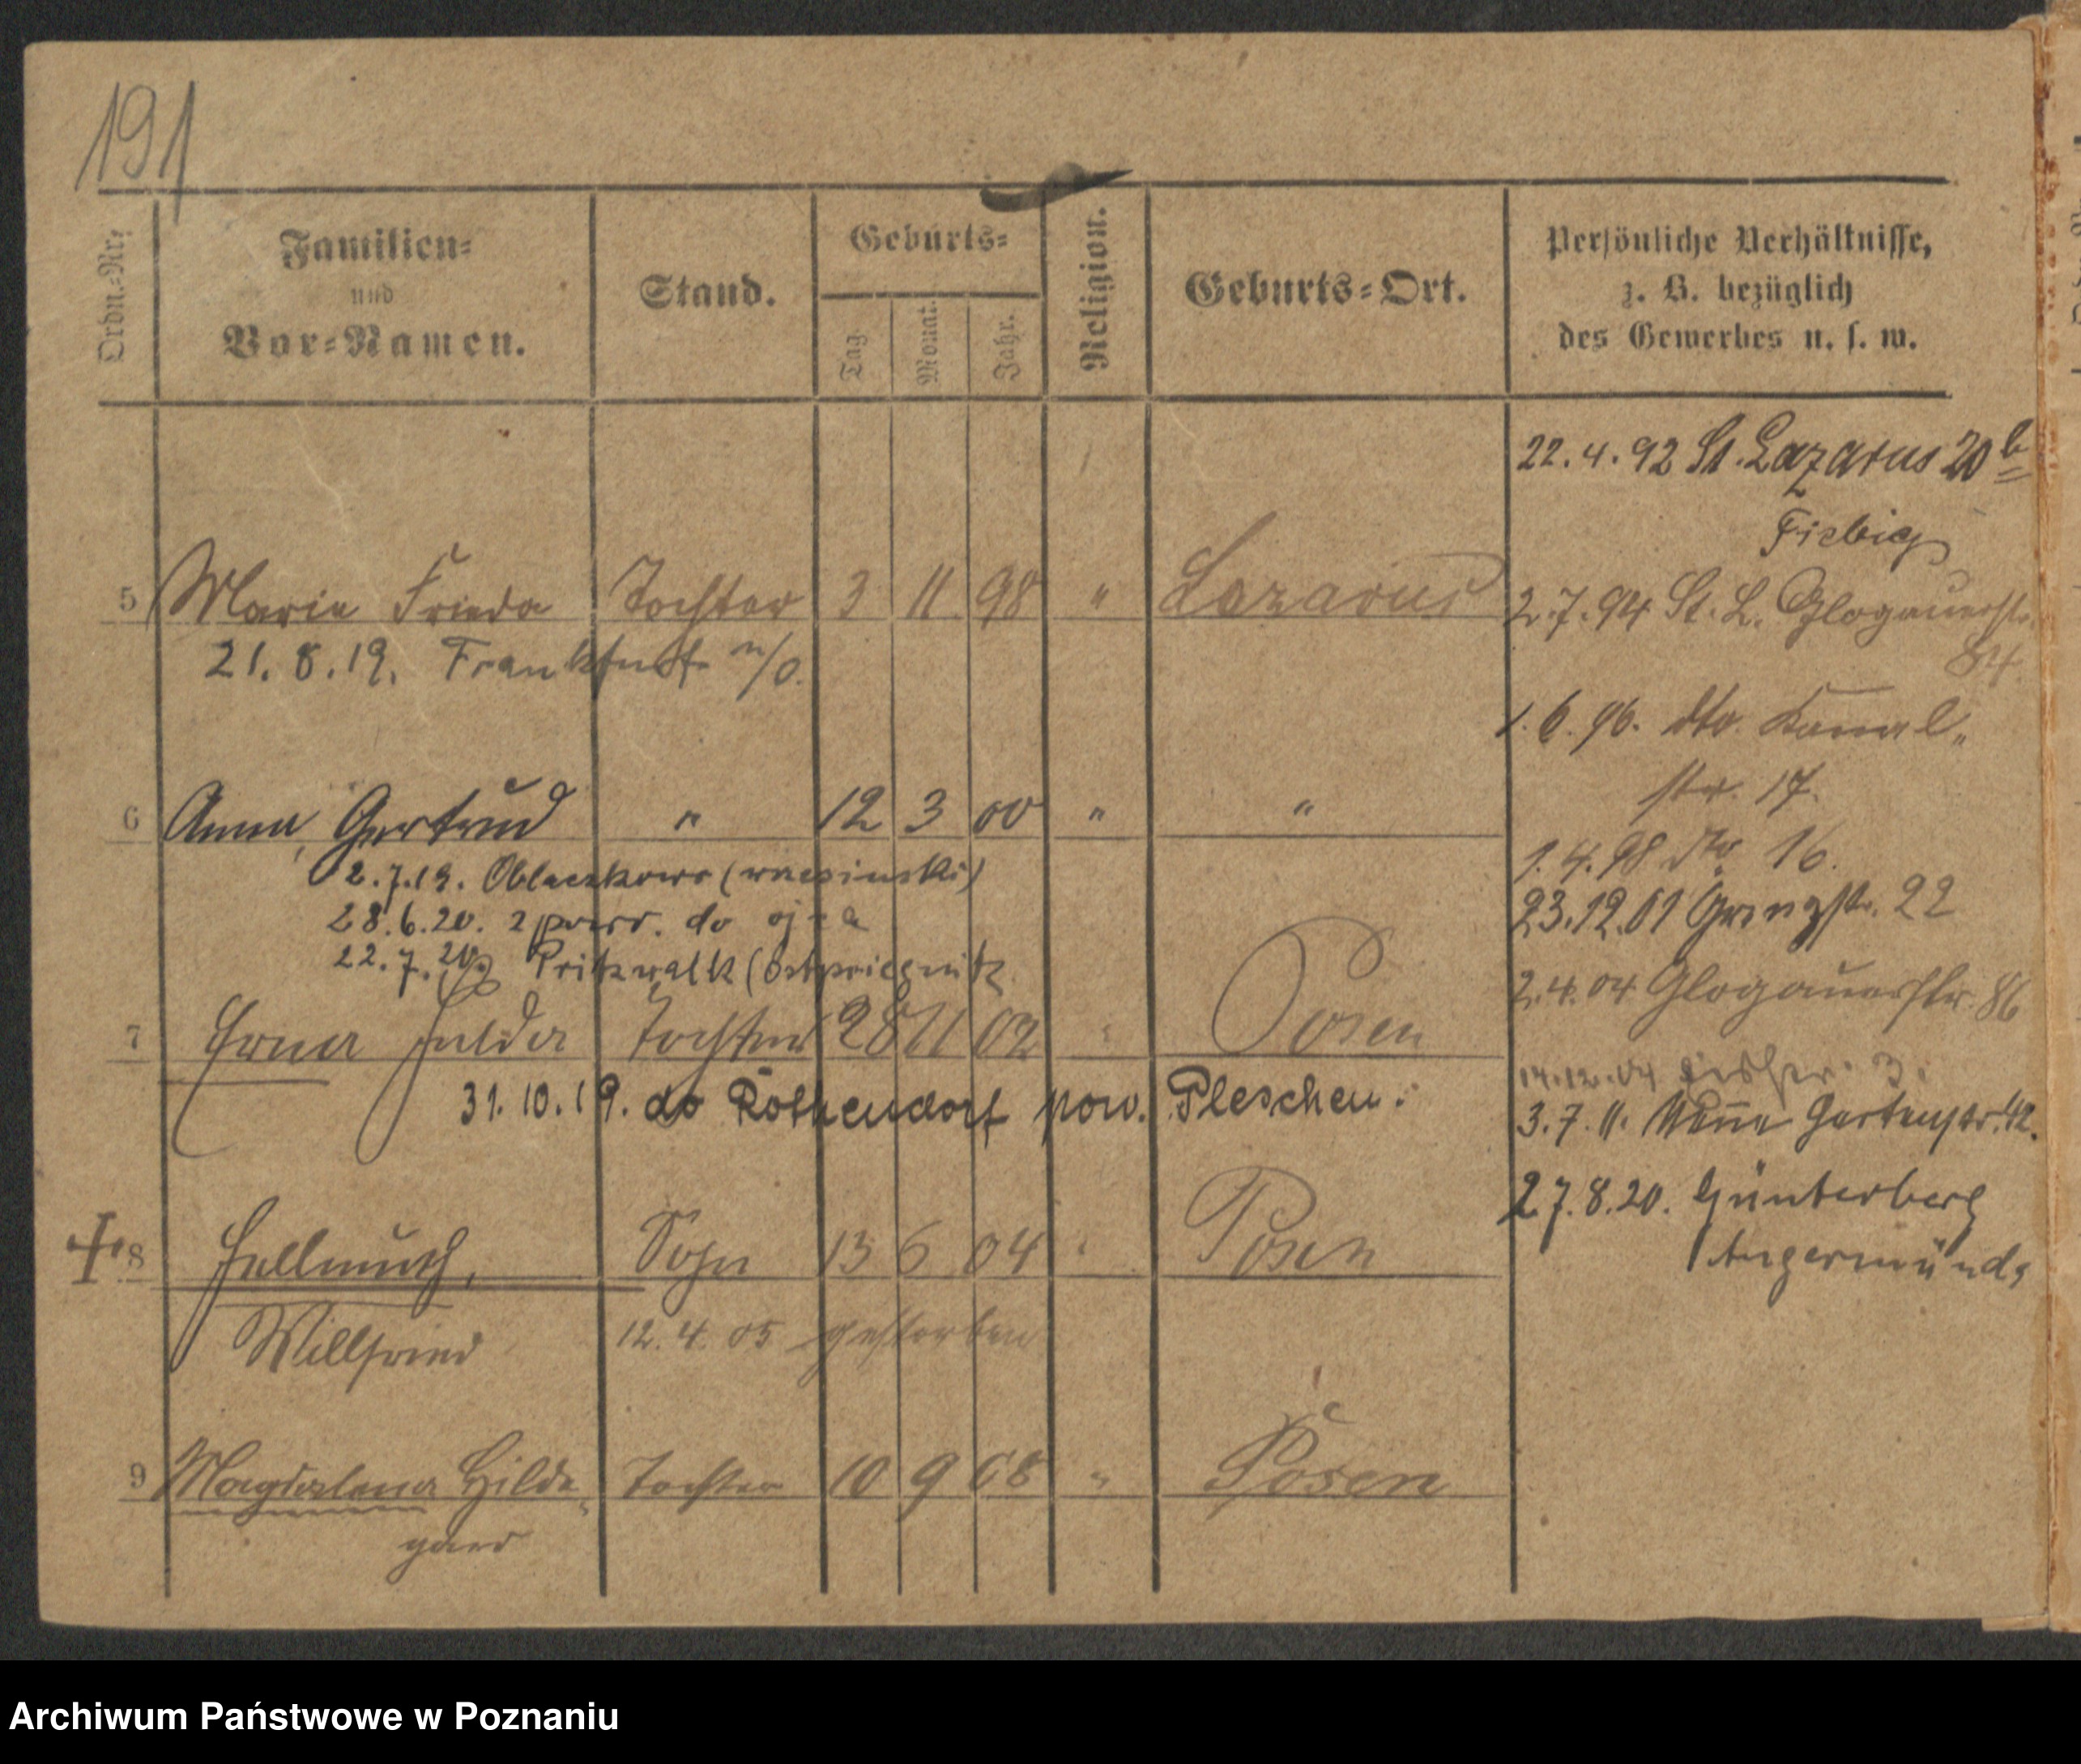 191
Ordn.-Nr.
Familien-
und
Vor-Namen.
Stand.
Geburts-
Tag.
Monat.
Jahr.
Religion.
Geburts-Ort.
Persönliche Verhältnisse,
z. B. bezüglich
des Gewerbes u. s. w.
22.4.92 St. Lazarus 20 b
Fiebig
5 Marie Frieda Tochter 3 11 98 " Lazarus
21.8.19. Frankfurt a/O.
2.7.94 St. L. Glogauerstr.
84
1.6.96. dto. Kanal-
str. 17.
6 Anna, Gertrud " 12 3 00 " "
2.7.19. Oblaczkowo (wrzesinski)
28.6.20. z powr. do ojca
22.7.20. Pritzwalk (Ostpriegnitz
1.4.98 dto 16.
23.12.01 22
2.4.04 Glogauerstr. 86
7 Erna Hulda Tochter 28 11 02 " Posen
31.10.19. do Rothendorf pow. Pleschen.
14.12.04 3.
3.7.11. Gartenstr. 42.
27.8.20. Günterberg
Angermünde
8 Hellmuth, Sohn 13 6 04 " Posen
Willfried 12.4.05 gestorben
9 Magdalena Hilde- Tochter 10 9 08 " Posen
gard
Archiwum Państwowe w Poznaniu